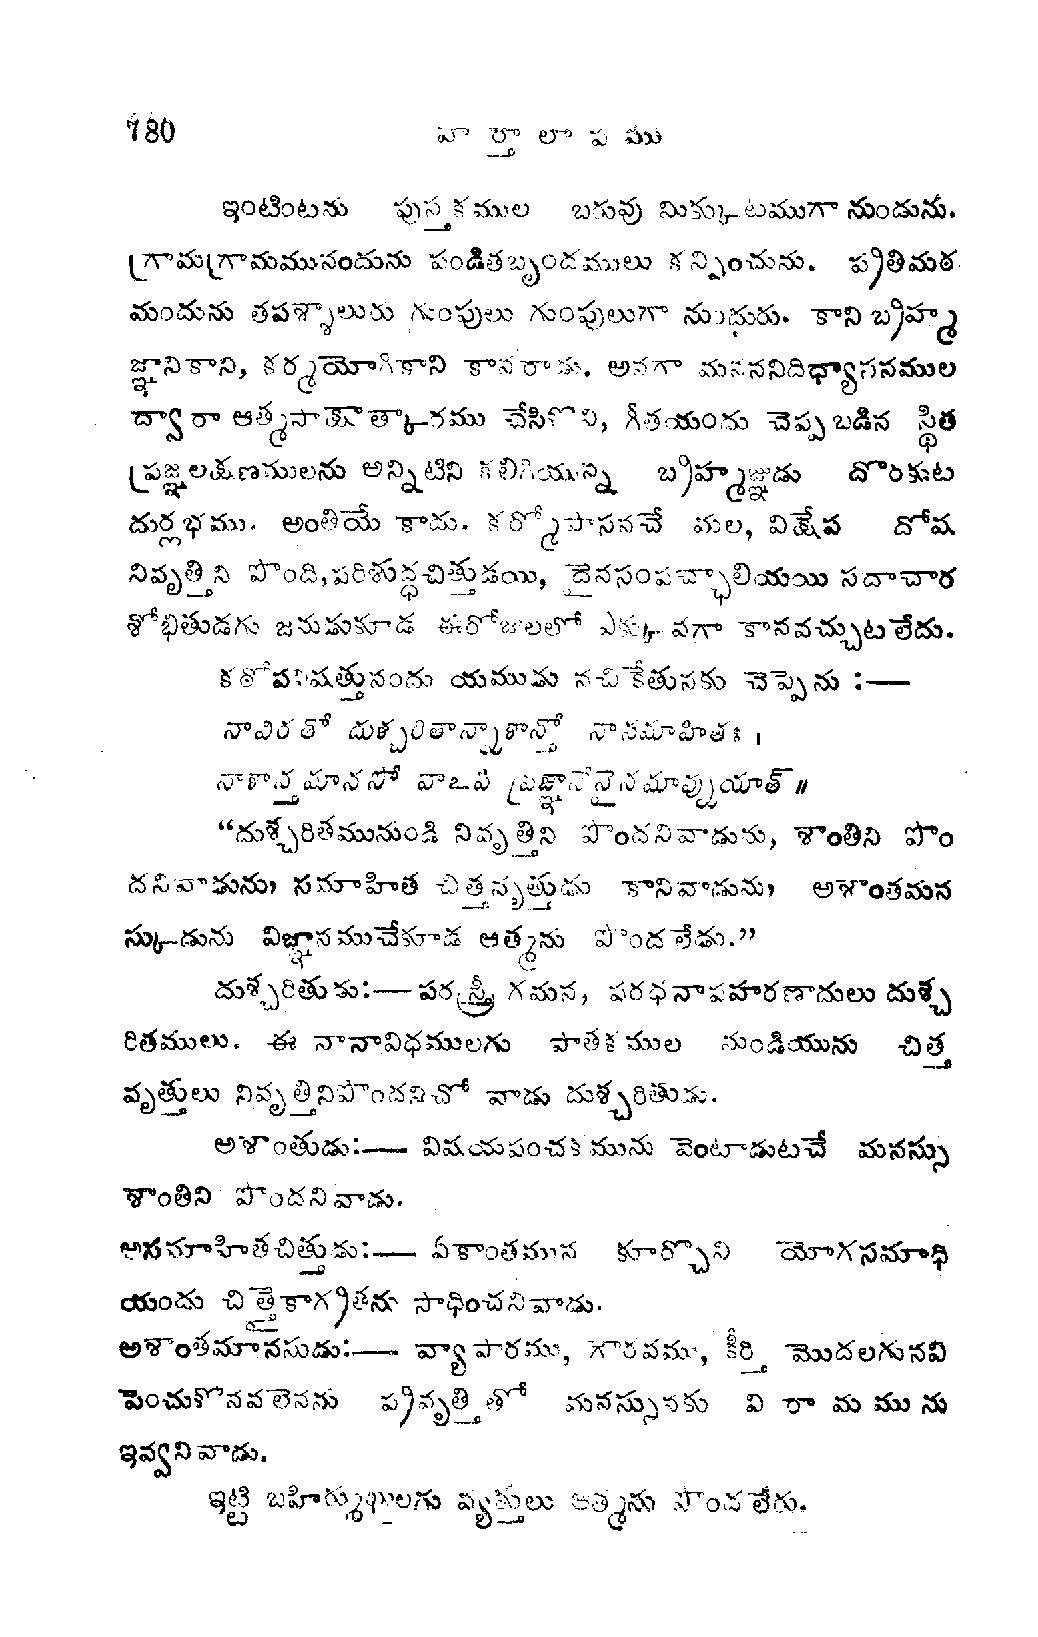 180 వార్తాలాపము
ఇంటింటను పుస్తకముల బరువు మిక్కుటముగా నుండును.
గ్రామగ్రామమునందును పండితబృందములు కన్పించును. ప్రతిమఠ
మందును తపశ్శాలురు గుంపులు గుంపులుగా నుందురు. కాని బ్రహ్మ
జ్ఞానికాని, కర్మయోగికాని కానరాడు. అనగా మనననిదిధ్యాసనముల
ద్వారా ఆత్మసాక్షాత్కారము చేసికొని, గీతయందు చెప్పబడిన స్థిత
ప్రజ్ఞలక్షణములను అన్నిటిని కలిగియున్న బ్రహ్మజ్ఞుడు దొరకుట
దుర్లభము. అంతియే కాదు. కర్మోపాసనచే మల, విక్షేప దోష
నివృత్తిని పొంది, పరిశుద్ధచిత్తుడయి, దైవసంపచ్ఛాలియయి సదాచార
శోభితుడగు జనుడుకూడ ఈరోజులలో ఎక్కువగా కానవచ్చుటలేదు.
కఠోపనిషత్తునందు యముడు నచికేతునకు చెప్పెను :—
నావిరతో దుశ్చరితాన్నాశాన్తో నాసమాహితః ।
నాశాన్తమానసో వాఽపి ప్రజ్ఞానేనైనమాప్నుయాత్ ॥
“దుశ్చరితమునుండి నివృత్తిని పొందనివాడును, శాంతిని పొం
దనివాడును, సమాహిత చిత్తవృత్తుడు కానివాడును, అశాంతమన
స్కుడును విజ్ఞానముచేకూడ ఆత్మను పొందలేడు.”
దుశ్చరితుడు:— పరస్త్రీ గమన, పరధనాపహారణాదులు దుశ్చ
రితములు. ఈ నానావిధములగు పాతకముల నుండియును చిత్త
వృత్తులు నివృత్తినిపొందనిచో వాడు దుశ్చరితుడు.
అశాంతుడు:— విషయపంచకమును వెంటాడుటచే మనస్సు
శాంతిని పొందనివాడు.
అసమాహితచిత్తుడు:— ఏకాంతమున కూర్చొని యోగసమాధి
యందు చిత్తైకాగ్రితను సాధించనివాడు.
అశాంతమానసుడు:— వ్యాపారము, గౌరవము, కీర్తి మొదలగునవి
పెంచుకొనవలెనను ప్రవృత్తితో మనస్సునకు విరామమును
ఇవ్వనివాడు.
ఇట్టి బహిర్ముఖులగు వ్యక్తులు ఆత్మను పొందలేరు.